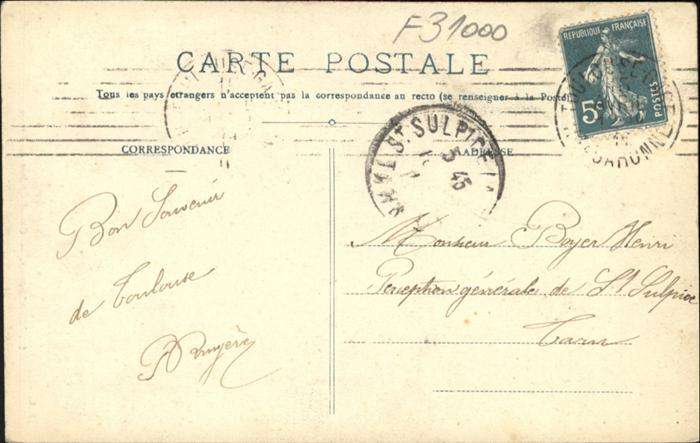 F31000
CARTE POSTALE
Tous les pays étrangers n'acceptent pas la correspondance au recto (se renseigner à la Poste)
REPUBLIQUE FRANÇAISE
5c
POSTES
GARONNE
ST SULPICE
5 45
CORRESPONDANCE
ADRESSE
Bon Souvenir
de Toulouse
Monsieur Boyer Henri
Perception générale de St Sulpice
Tarn